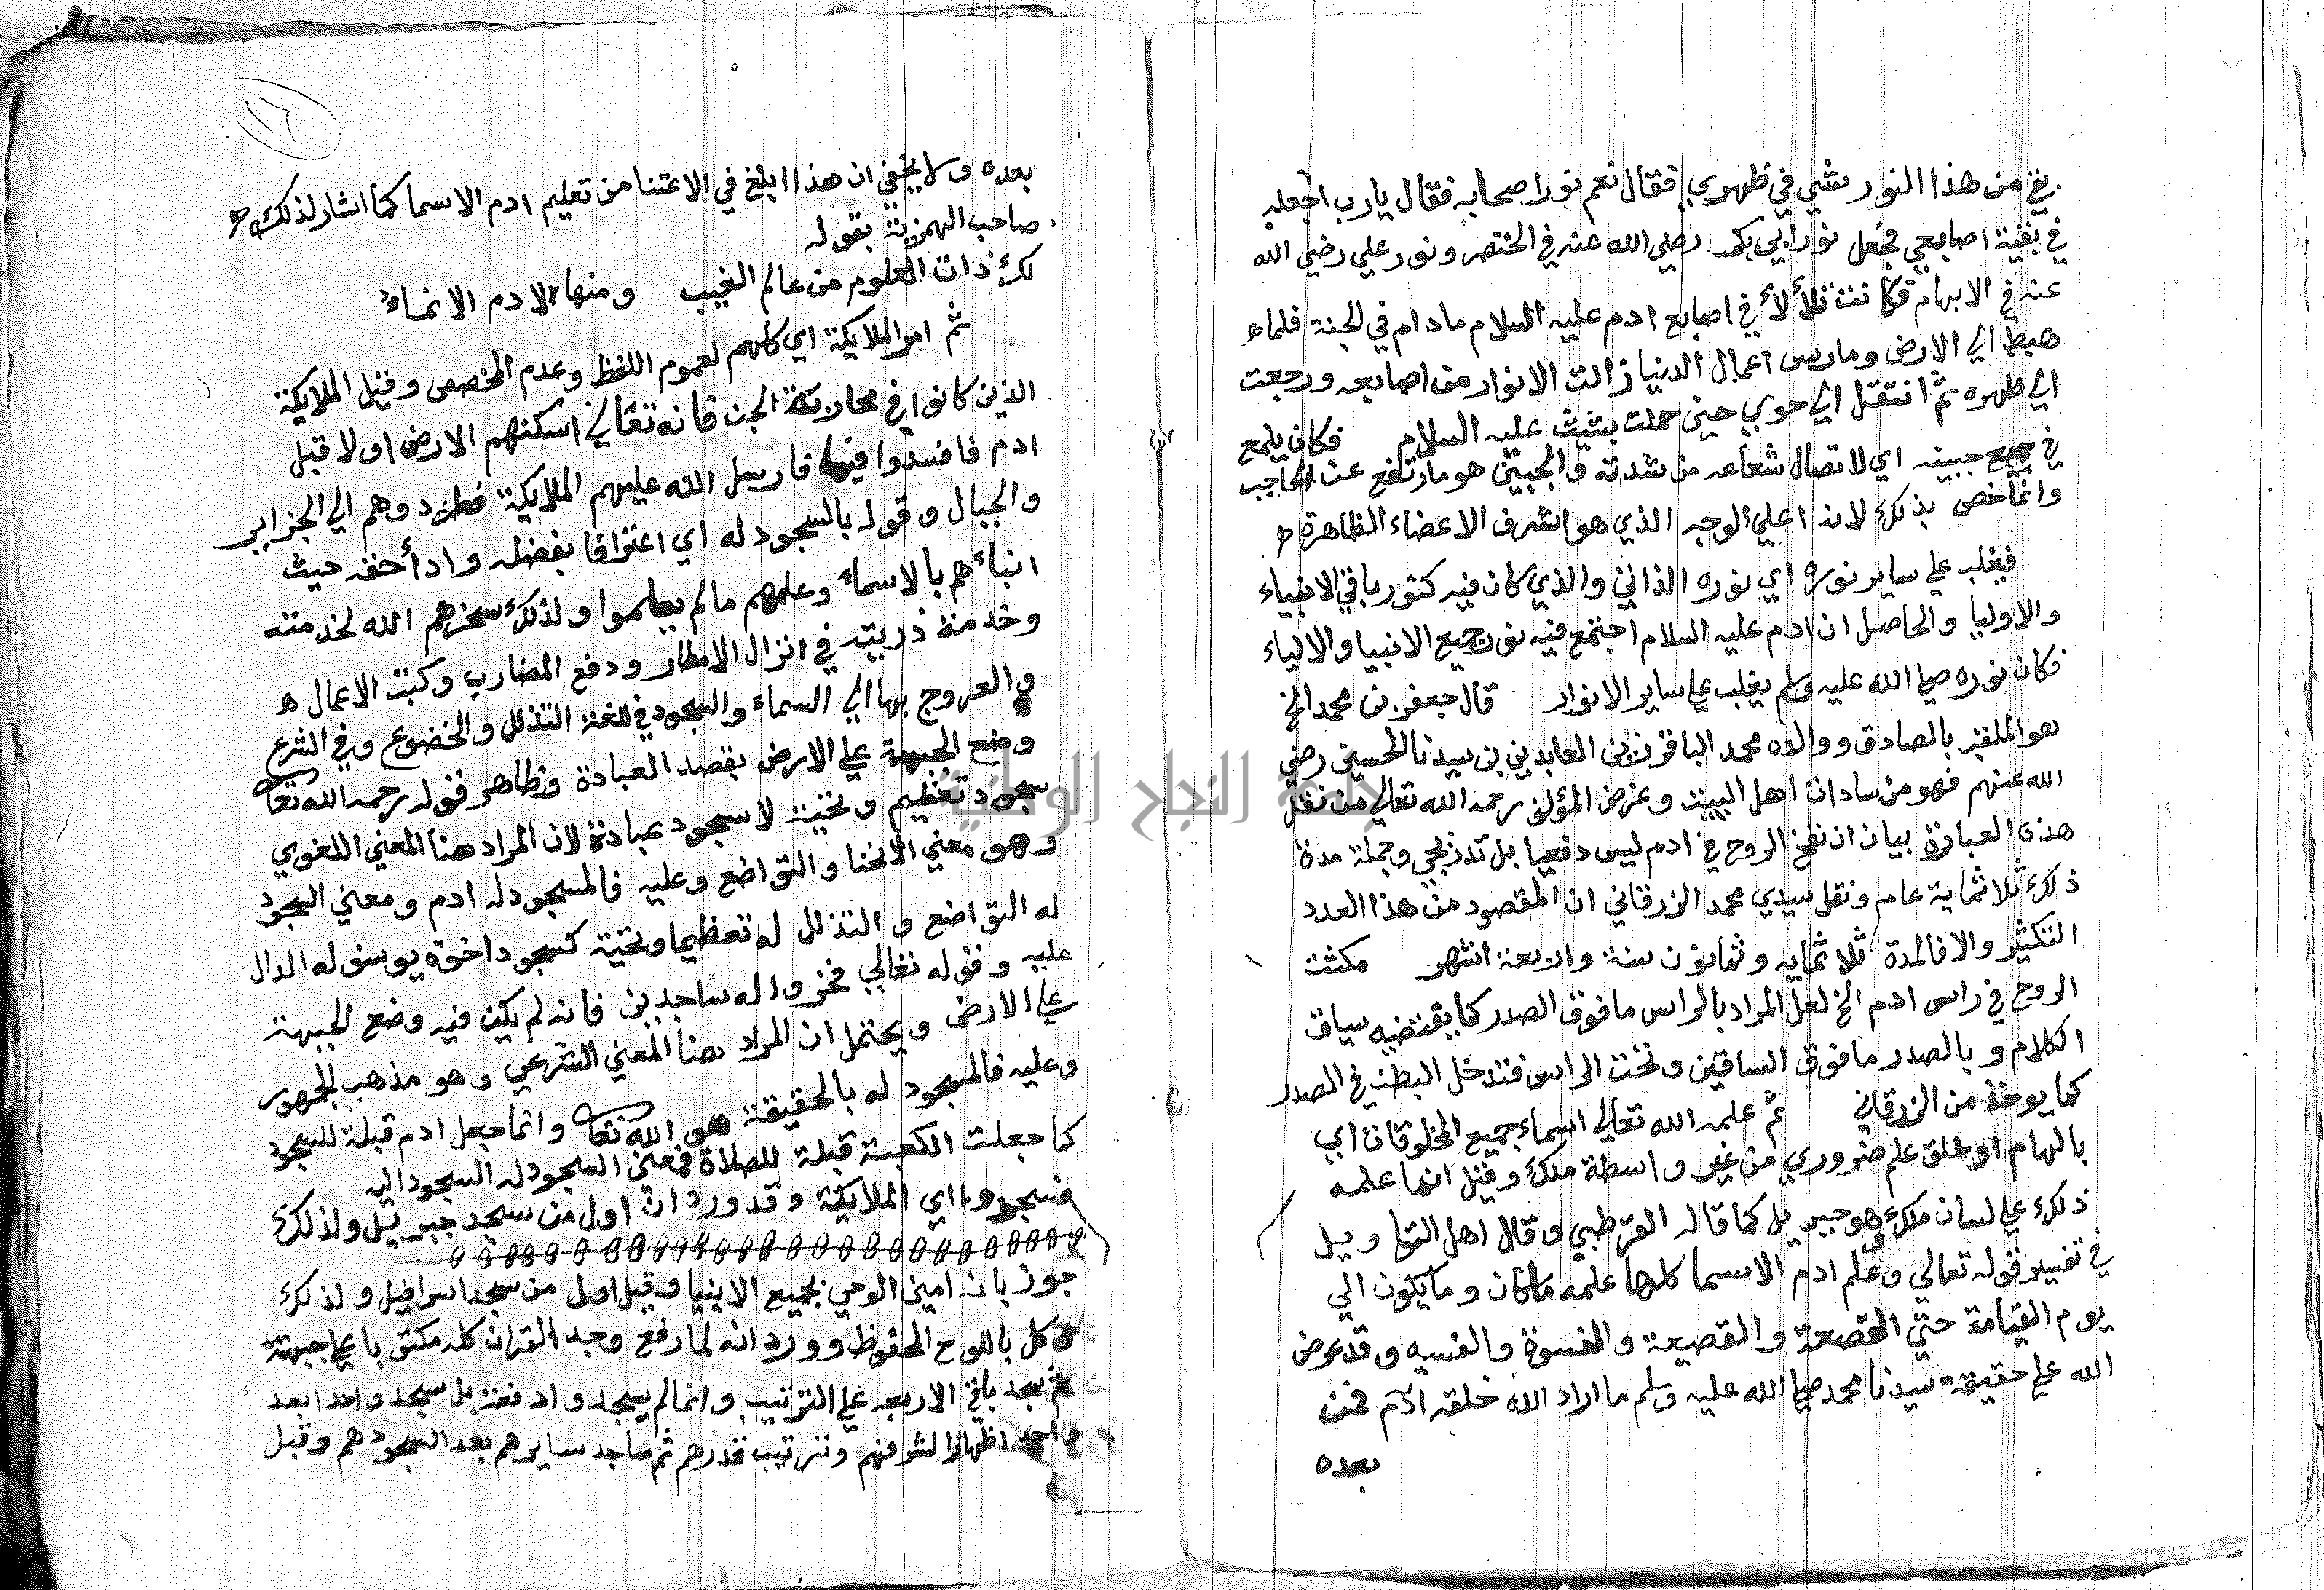 بقي من هذا النور شي في ظهري فقال نعم نور اصحابه فقال يارب اجعله
في بقية اصابعي فجعل نور ابي بكر رضي الله عنه في الخنصر ونور علي رضي الله
عنه في الابهام فكانت تتلألأ في اصابع ادم عليه السلام مادام في الجنة فلما
هبط الي الارض ومارس اعمال الدنيا زالت الانوار من اصابعه ورجعت
الي ظهره ثم انتقل الي حوي حين حملت بشيث عليه السلام فكان يلمع
في جبينه اي لاتصال شعاعه من شدته والجبين هو مارتفع عن الحاجب
وانما خص بذلك لانه اعلي الوجه الذي هو اشرف الاعضاء الظاهرة
فيغلب علي ساير نوره اي نوره الذاتي والذي كان فيه كنور باقي الانبياء
والاوليا والحاصل ان ادم عليه السلام اجتمع فيه نور جميع الانبيا والالياء
فكان نوره صلي الله عليه وسلم يغلب علي ساير الانوار قال جعفر بن محمد الخ
هو الملقب بالصادق ووالده محمد الباقر بن زين العابدين بن سيدنا الحسين رضي
الله عنهم فهو من سادات اهل البيت وغرض المؤلف رحمه الله تعالي من نقل
هذه العبارة بيان ان نفخ الروح في ادم ليس دفعيا بل تدريجي وجملة مدة
ذلك ثلاثماية عام ونقل سيدي محمد الزرقاني ان المقصود من هذا العدد
التكثير والا فالمدة ثلاثمايه وثمانون سنة واربعة اشهر مكثت
الروح في راس ادم الخ لعل المراد بالراس مافوق الصدر كما يقتضيه سياق
الكلام وبالصدر مافوق الساقين وتحت الراس فتدخل البطن في الصدر
كما يوخذ من الزرقاني ثم علمه الله تعالي اسماء جميع المخلوقات اي
بالهام او خلق علم ضروري من غير واسطة ملك وقيل انما علمه
ذلك علي لسان ملك هو جبريل كما قاله القرطبي وقال اهل التاويل
في تفسير قوله تعالي وعلم ادم الاسما كلها علمه ماكان ومايكون الي
يوم القيامة حتي القصعة والقصيعة والفسوة والفسيه وقد عرض
الله علي حقيقة سيدنا محمد صلي الله عليه وسلم ما اراد الله خلقه ادم فمن
بعده
١٦
بعده ولا يخفي ان هذا ابلغ في الاعتنا من تعليم ادم الاسما كما اشار لذلك
صاحب الهمزية بقوله
لك ذات العلوم من عالم الغيب ومنها لادم الاسماء
ثم امر الملايكة اي كلهم لعموم اللفظ وعدم المخصص وقيل الملايكة
الذين كانوا في محاربة الجن فانه تعالي اسكنهم الارض اولا قبل
ادم فافسدوا فيها فارسل الله عليهم الملايكة فطردوهم الي الجزاير
والجبال وقوله بالسجود له اي اعترافا بفضله واداً حقه حيث
انبأهم بالاسماء وعلمهم مالم يعلموا ولذلك سخرهم الله لخدمته
وخدمة ذريته في انزال الامطار ودفع المضارب وكتب الاعمال
والعروج بها الي السماء والسجود في اللغة التذلل والخضوع وفي الشرع
وضع الجبهة علي الارض بقصد العبادة وظاهر قوله رحمه الله تعا
سجود تعظيم وتحية لا سجود عبادة لان المراد هنا المعني اللغوي
وهو معني الانحنا والتواضع وعليه فالمسجود له ادم ومعني السجود
له التواضع والتذلل له تعظيما وتحية كسجود اخوة يوسف له الدال
عليه وقوله تعالي فخروا له ساجدين فانه لم يكن فيه وضع الجبهة
علي الارض ويحتمل ان المراد هنا المعني الشرعي وهو مذهب الجمهور
وعليه فالمسجود له بالحقيقة هو الله تعا وانما جعل ادم قبلة للسجود
كما جعلت الكعبة قبلة للصلاة فمعني السجود له السجود اليه
فسجدوا اي الملايكة وقد ورد ان اول من سجد جبريل ولذلك
جوز بانه امين الوحي بجميع الانبيا وقيل اول من سجد اسرافيل ولذلك
وكل باللوح المحفوظ وورد انه لما رفع وجد القران كله مكتوبا علي جبهته
ثم سجد باقي الاربعه علي الترتيب وانما لم يسجدوا دفعة بل سجد واحد ابعد
واحد اظهارا لشرفهم وترتيب قدرهم ثم ساجد سايرهم بعد السجودهم وقيل
النجاح الوطنية